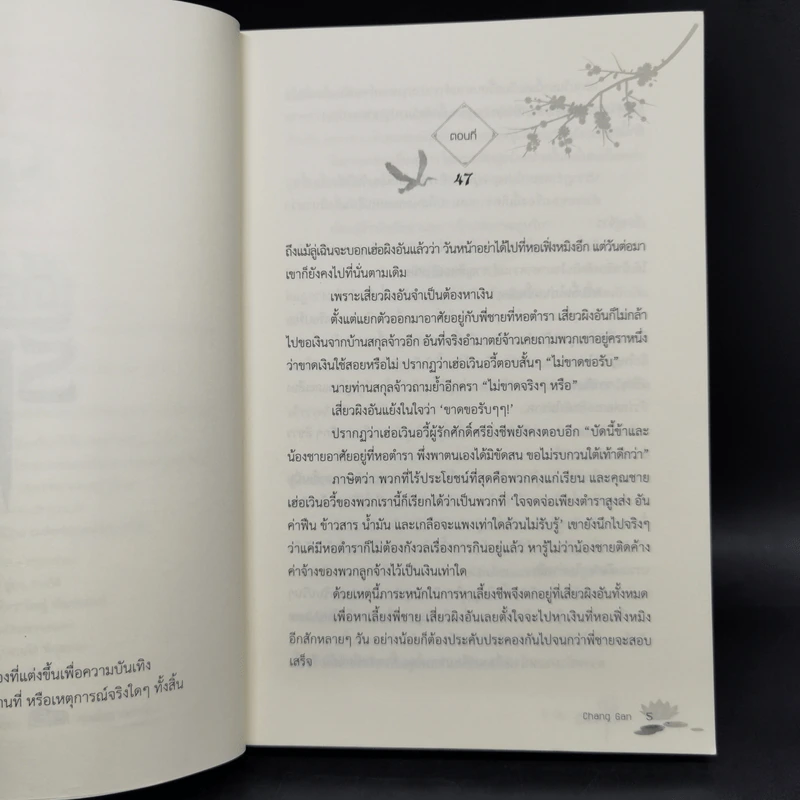 องที่แต่งขึ้นเพื่อความบันเทิง
านที่ หรือเหตุการณ์จริงใดๆ ทั้งสิ้น
ตอนที่
47
ถึงแม้ลู่เฉินจะบอกเฮ่อผิงอันแล้วว่า วันหน้าอย่าได้ไปที่หอเฟิ่งหมิงอีก แต่วันต่อมา
เขาก็ยังคงไปที่นั่นตามเดิม
เพราะเสี่ยวผิงอันจำเป็นต้องหาเงิน
ตั้งแต่แยกตัวออกมาอาศัยอยู่กับพี่ชายที่หอตำรา เสี่ยวผิงอันก็ไม่กล้า
ไปขอเงินจากบ้านสกุลจ้าวอีก อันที่จริงอำมาตย์จ้าวเคยถามพวกเขาอยู่คราหนึ่ง
ว่าขาดเงินใช้สอยหรือไม่ ปรากฏว่าเฮ่อเวินอวี้ตอบสั้นๆ “ไม่ขาดขอรับ”
นายท่านสกุลจ้าวถามย้ำอีกครา “ไม่ขาดจริงๆ หรือ”
เสี่ยวผิงอันแย้งในใจว่า ‘ขาดขอรับๆๆ!’
ปรากฏว่าเฮ่อเวินอวี้ผู้รักศักดิ์ศรียิ่งชีพยังคงตอบอีก “บัดนี้ข้าและ
น้องชายอาศัยอยู่ที่หอตำรา พึ่งพาตนเองได้มิขัดสน ขอไม่รบกวนใต้เท้าดีกว่า”
ภาษิตว่า พวกที่ไร้ประโยชน์ที่สุดคือพวกคงแก่เรียน และคุณชาย
เฮ่อเวินอวี้ของพวกเรานี้ก็เรียกได้ว่าเป็นพวกที่ ‘ใจจดจ่อเพียงตำราสูงส่ง อัน
ค่าฟืน ข้าวสาร น้ำมัน และเกลือจะแพงเท่าใดล้วนไม่รับรู้’ เขายังนึกไปจริงๆ
ว่าแค่มีหอตำราก็ไม่ต้องกังวลเรื่องการกินอยู่แล้ว หารู้ไม่ว่าน้องชายติดค้าง
ค่าจ้างของพวกลูกจ้างไว้เป็นเงินเท่าใด
ด้วยเหตุนี้ภาระหนักในการหาเลี้ยงชีพจึงตกอยู่ที่เสี่ยวผิงอันทั้งหมด
เพื่อหาเลี้ยงพี่ชาย เสี่ยวผิงอันเลยตั้งใจจะไปหาเงินที่หอเฟิ่งหมิง
อีกสักหลายๆ วัน อย่างน้อยก็ต้องประคับประคองกันไปจนกว่าพี่ชายจะสอบ
เสร็จ
Chang Gan 5